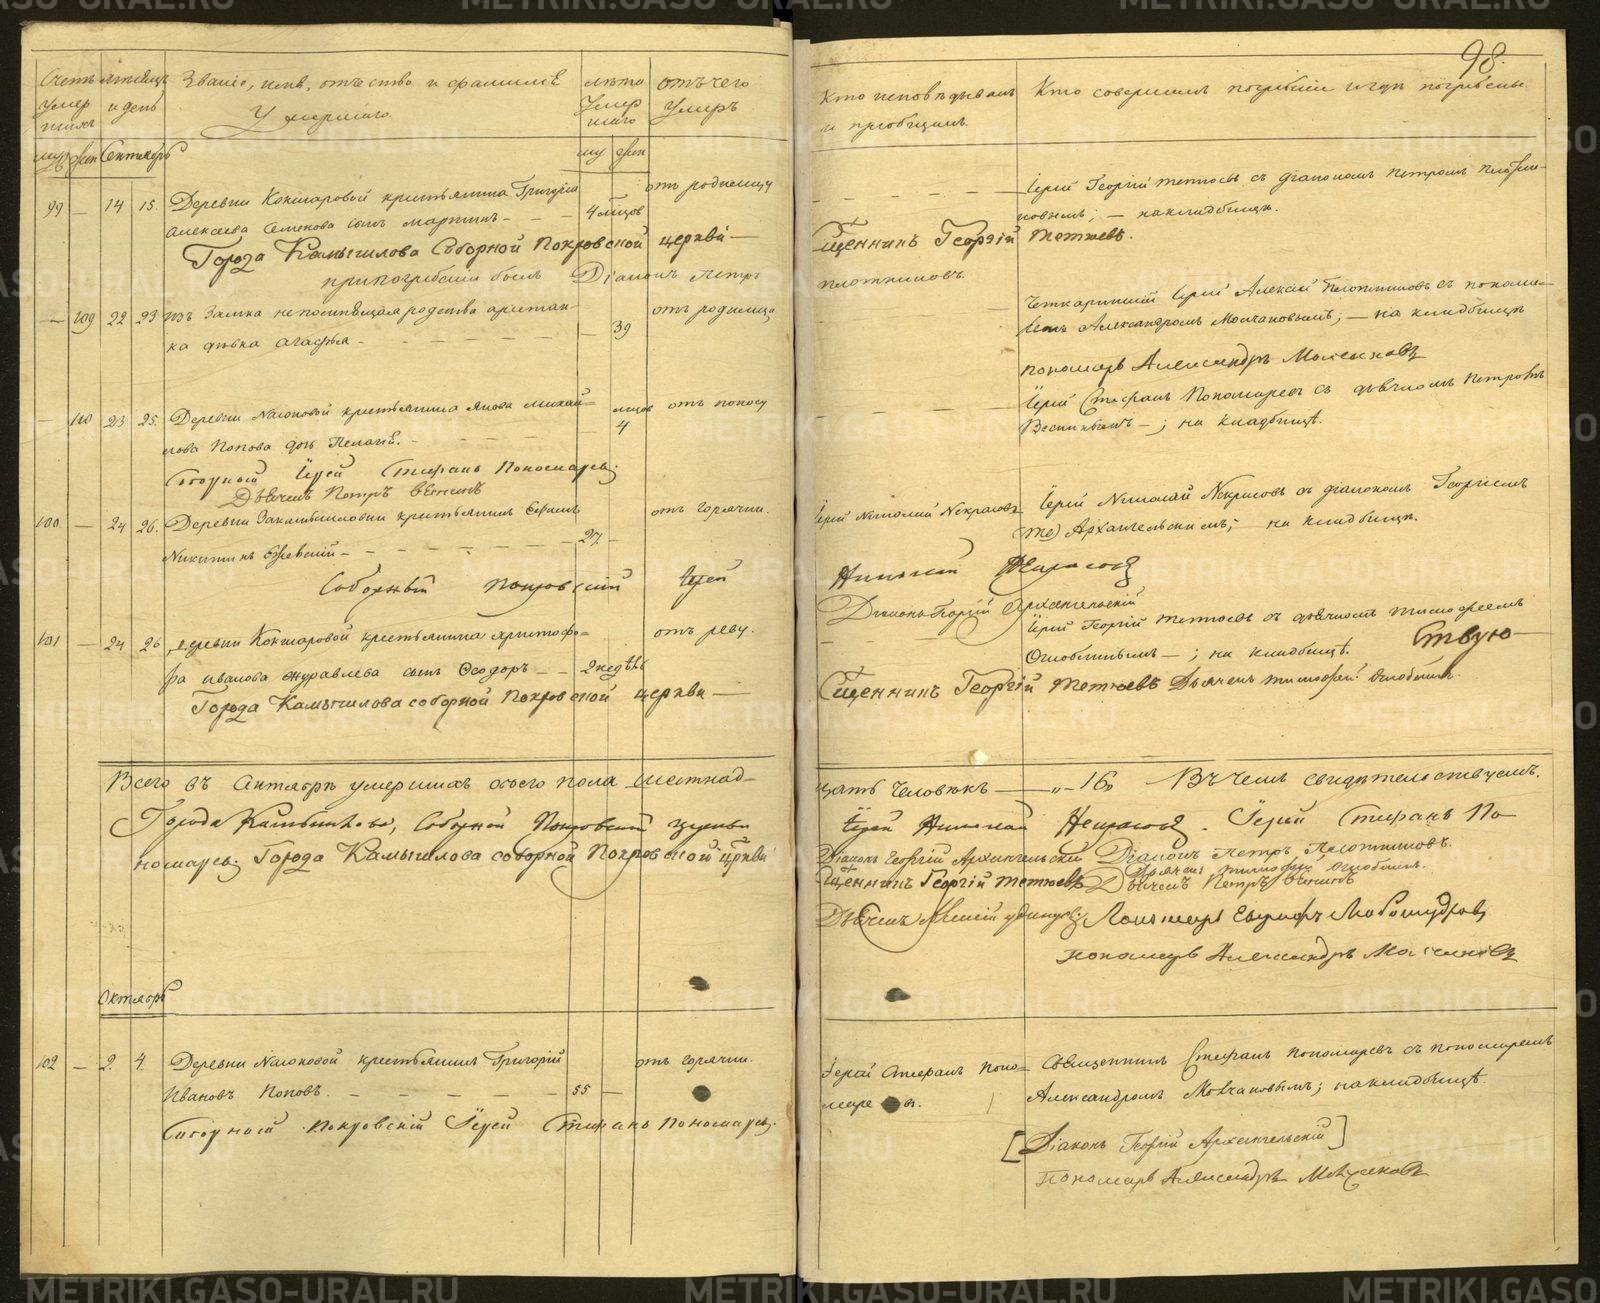 98.
Счетъ умершихъ
мѣсяцъ и день
Званіе, имя, отчество и фамилія
умершаго.
лѣта умершаго
отъ чего умеръ
Кто исповѣдывалъ и пріобщалъ
Кто совершалъ погребеніе и гдѣ погребены.
муж жен Сентябрь
му жен
99 — 14 15. Деревни Кокшаровой крестьянина Григорія
Алексѣева Семенова сынъ Мартинъ - - - 4 мѣсяцовъ
отъ родимцу
Іерей Георгій Тетюевъ съ діакономъ Петромъ Плотни-
ковымъ; — на кладбищѣ.
Города Камышлова Соборной Покровской церкви —
Священникъ Георгій Тетюевъ.
при погребеніи былъ Діаконъ Петръ
Плотниковъ.
— 109 22 23 Изъ Замка непомнящая родства арестан-
ка дѣвка Агафья - - - 39
отъ родимца
Іерей Алексѣй Плотниковъ съ понома-
ремъ Александромъ Молчановымъ; — на кладбищѣ
пономарь Александръ Молчановъ
— 110 23 25. Деревни Насоновой крестьянина Якова Михай-
лова Попова дочь Пелагія. - - - мѣсяцов 4
отъ поносу
Іерей Стефанъ Пономаревъ съ дьячкомъ Петромъ
— ; на кладбищѣ.
Соборный Іерей Стефанъ Пономаревъ.
Дьячекъ Петръ
100 — 24 26. Деревни крестьянинъ Ефимъ
Никитинъ - - - 27. —
отъ горячки.
Іерей Николай Некрасовъ
Іерей Николай Некрасовъ съ діакономъ Георгіемъ
Архангельскимъ; — на кладбищѣ.
Соборный Покровскій Іерей
Николай Некрасовъ
Діаконъ Георгій Архангельскій
101 — 24 26 деревни Кокшаровой крестьянина Христофо-
ра Иванова Журавлева сынъ Ѳеодоръ - - 2 недѣль
отъ реву.
Іерей Георгій Тетюевъ съ дьячкомъ Тимофеемъ
Оглоблинымъ — ; на кладбищѣ.
Города Камышлова соборной Покровской церкви —
Священникъ Георгій Тетюевъ Дьячекъ Тимофей Оглоблинъ.
Всего въ Сентябрѣ умершихъ обоего пола шестнад-
цать человѣкъ —„— 16, Въ чемъ свидѣтельствуемъ.
Города Камышлова, Соборной Покровской церкви
Іерей Николай Некрасовъ. Іерей Стефанъ По-
номаревъ. Города Камышлова соборной Покровской церкви
Діаконъ Георгій Архангельскій Діаконъ Петръ Плотниковъ.
Дьячекъ Тимофей Оглоблинъ.
Священникъ Георгій Тетюевъ Дьячекъ Петръ
Дьячекъ Пономарь Евграфъ Любомудровъ
пономарь Александръ Молчановъ
Октябрь
102 — 2. 4. Деревни Насоновой крестьянинъ Григорій
Ивановъ Поповъ. - - - 55 —
отъ горячки.
Іерей Стефанъ Поно-
маревъ.
Священникъ Стефанъ Пономаревъ съ пономаремъ
Александромъ Молчановымъ; на кладбищѣ.
Соборной Покровскій Іерей Стефанъ Пономаревъ.
[Діаконъ Георгій Архангельскій]
Пономарь Александръ Молчановъ
METRIKI.GASO-URAL.RU